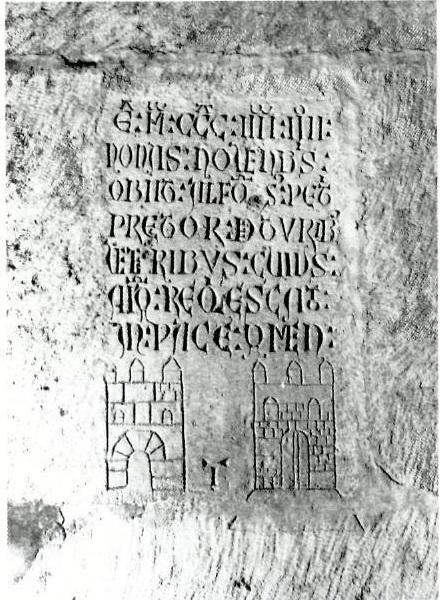 E : M : CCC : IIII : IIII :
NONAS : NOVENBS :
OBIIT : ALFO S : PET
PRETOR : D TURIB
RIBUS : CUIUS :
AIA : REQESCAT :
IN : PACE : AMEN :
T